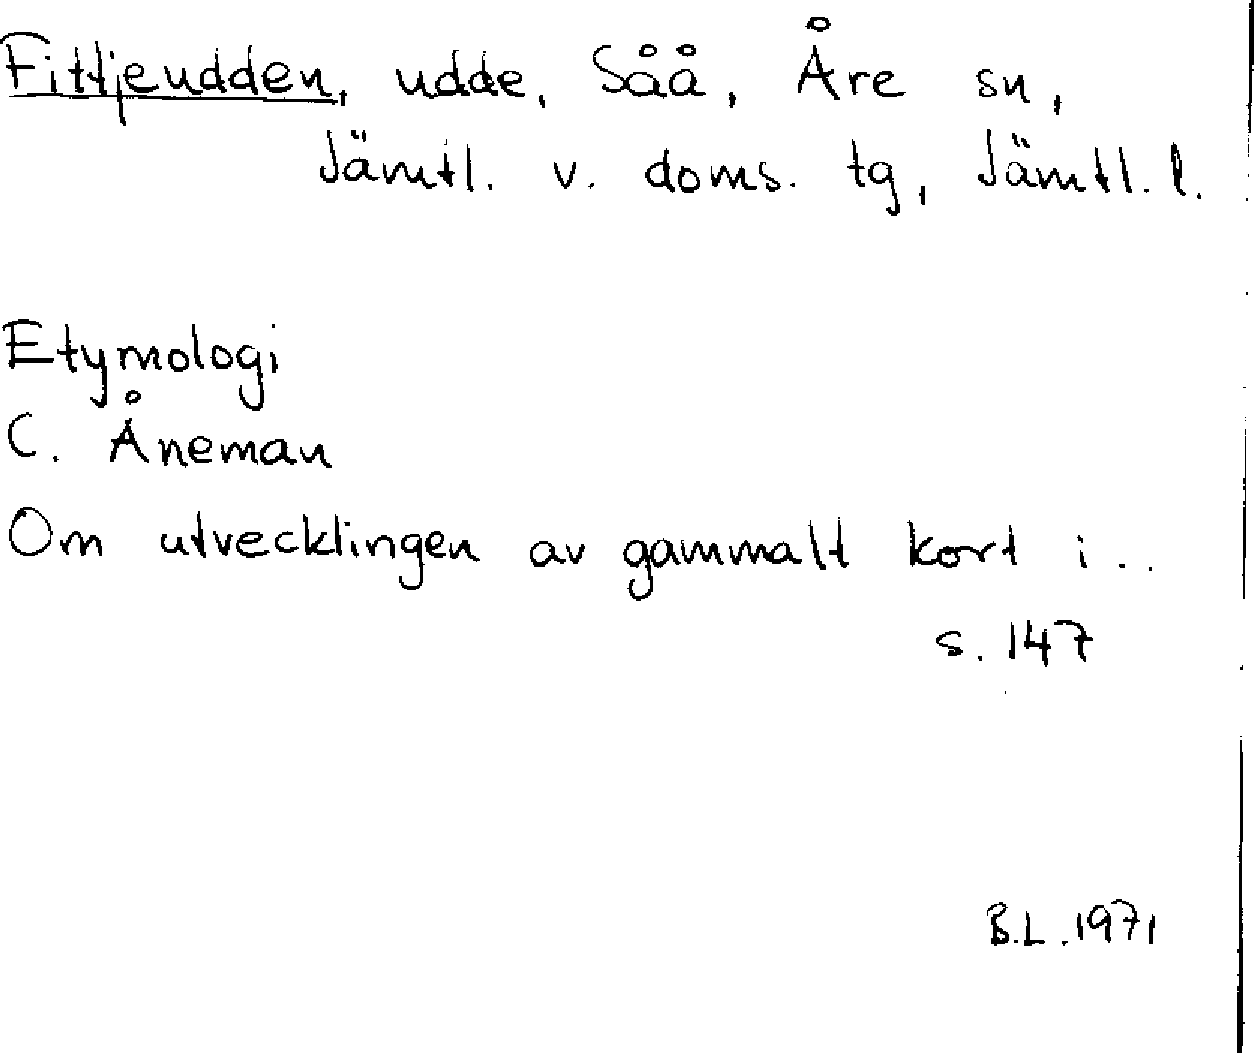 Fittjeudden, udde, Såå, Åre sn,
Jämtl. v. doms. tg, Jämtl. l.
Etymologi
C. Åneman
Om utvecklingen av gammalt kort i..
s. 147
B.L. 1971